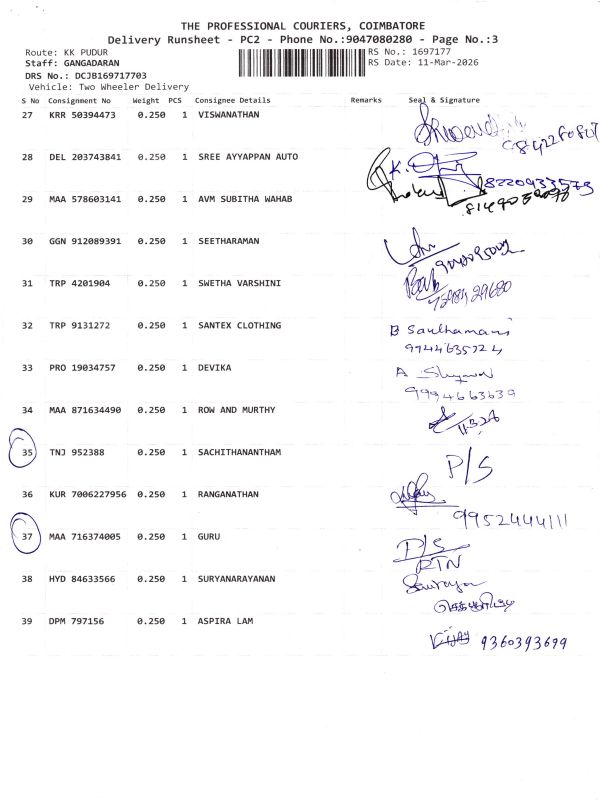 THE PROFESSIONAL COURIERS, COIMBATORE
Delivery Runsheet - PC2 - Phone No.:9047080280 - Page No.:3
Route: KK PUDUR
RS No.: 1697177
Staff: GANGADARAN
RS Date: 11-Mar-2026
DRS No.: DCJB169717703
Vehicle: Two Wheeler Delivery
S No Consignment No Weight PCS Consignee Details Remarks Seal & Signature
27 KRR 50394473 0.250 1 VISWANATHAN
28 DEL 203743841 0.250 1 SREE AYYAPPAN AUTO
8220933573
29 MAA 578603141 0.250 1 AVM SUBITHA WAHAB
30 GGN 912089391 0.250 1 SEETHARAMAN
31 TRP 4201904 0.250 1 SWETHA VARSHINI
32 TRP 9131272 0.250 1 SANTEX CLOTHING
33 PRO 19034757 0.250 1 DEVIKA
A
9994663639
34 MAA 871634490 0.250 1 ROW AND MURTHY
35 TNJ 952388 0.250 1 SACHITHANANTHAM P/S
36 KUR 7006227956 0.250 1 RANGANATHAN
9952444111
37 MAA 716374005 0.250 1 GURU P/S
RTN
38 HYD 84633566 0.250 1 SURYANARAYANAN
39 DPM 797156 0.250 1 ASPIRA LAM
Vijay 9360393699